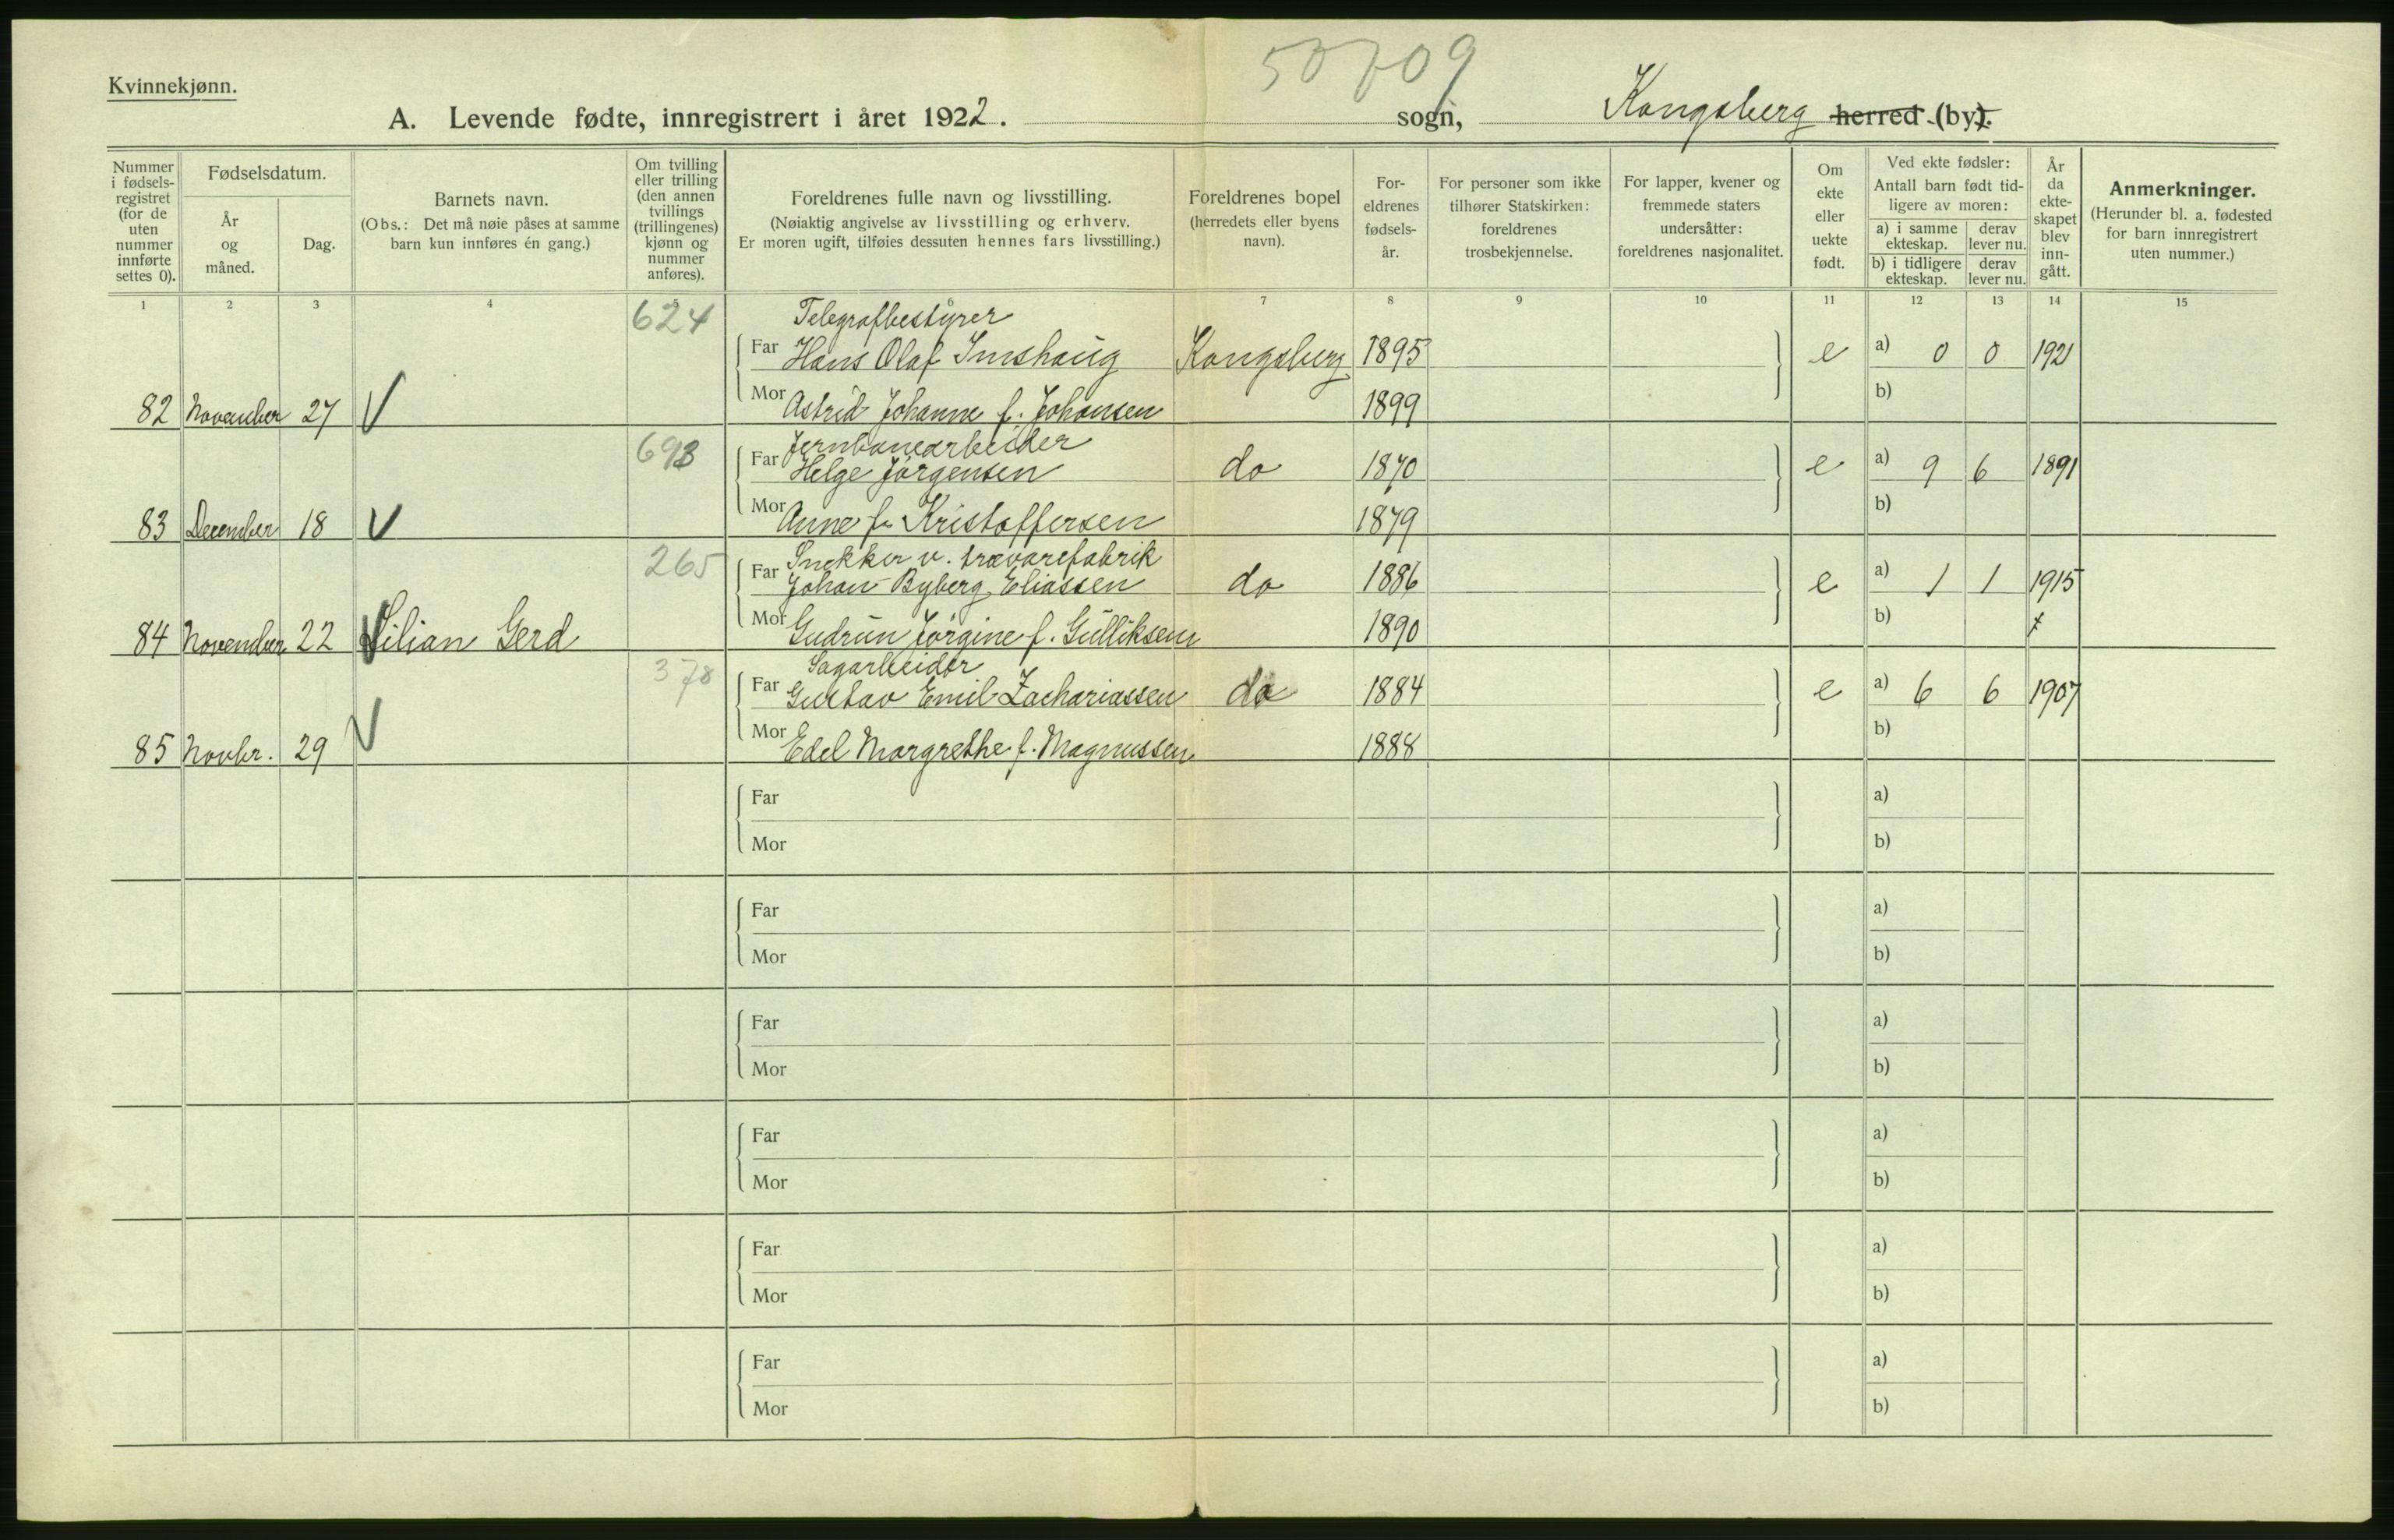 50709
Kvinnekjønn.
A. Levende fødte, innregistrert i året 1922. sogn, Kongsberg herred (by).
Nummer i fødsels-registret (for de uten nummer innførte settes 0).
Fødselsdatum.
År og måned.
Dag.
Barnets navn.
(Obs.: Det må nøie påses at samme barn kun innføres én gang.)
Om tvilling eller trilling (den annen tvillings (trillingenes) kjønn og nummer anføres).
Foreldrenes fulle navn og livsstilling.
(Nøiaktig angivelse av livsstilling og erhverv.
Er moren ugift, tilføies dessuten hennes fars livsstilling.)
Foreldrenes bopel (herredets eller byens navn).
For-eldrenes fødsels-år.
For personer som ikke tilhører Statskirken: foreldrenes trosbekjennelse.
For lapper, kvener og fremmede staters undersåtter: foreldrenes nasjonalitet.
Om ekte eller uekte født.
Ved ekte fødsler:
Antall barn født tid-ligere av moren:
a) i samme ekteskap.
derav lever nu.
b) i tidligere ekteskap.
derav lever nu.
År da ekte-skapet blev inn-gått.
Anmerkninger.
(Herunder bl. a. fødested for barn innregistrert uten nummer.)
1 2 3 4 5 7 8 9 10 11 12 13 14 15
624 Telegrafbestyrer
Far Hans Olaf Imshaug Kongsberg 1895 e a) 0 0 1921
82 November 27 V Mor Astrid Johanne f. Johansen 1899 b)
693 Jernbanearbeider
Far Helge Jørgensen do 1870 e a) 9 6 1891
83 December 18 V Mor Anne f. Kristoffersen 1879 b)
265 Snekker v. trævarefabrik
Far Johan Byberg Eliassen do 1886 e a) 1 1 1915
84 November 22 Lilian Gerd Mor Gudrun Jørgine f. Gulliksen 1890 b)
378 Sagarbeider
Far Gustav Emil Zachariassen do 1884 e a) 6 6 1907
85 Novbr. 29 V Mor Edel Margrethe f. Magnussen 1888 b)
Far a)
Mor b)
Far a)
Mor b)
Far a)
Mor b)
Far a)
Mor b)
Far a)
Mor b)
Far a)
Mor b)